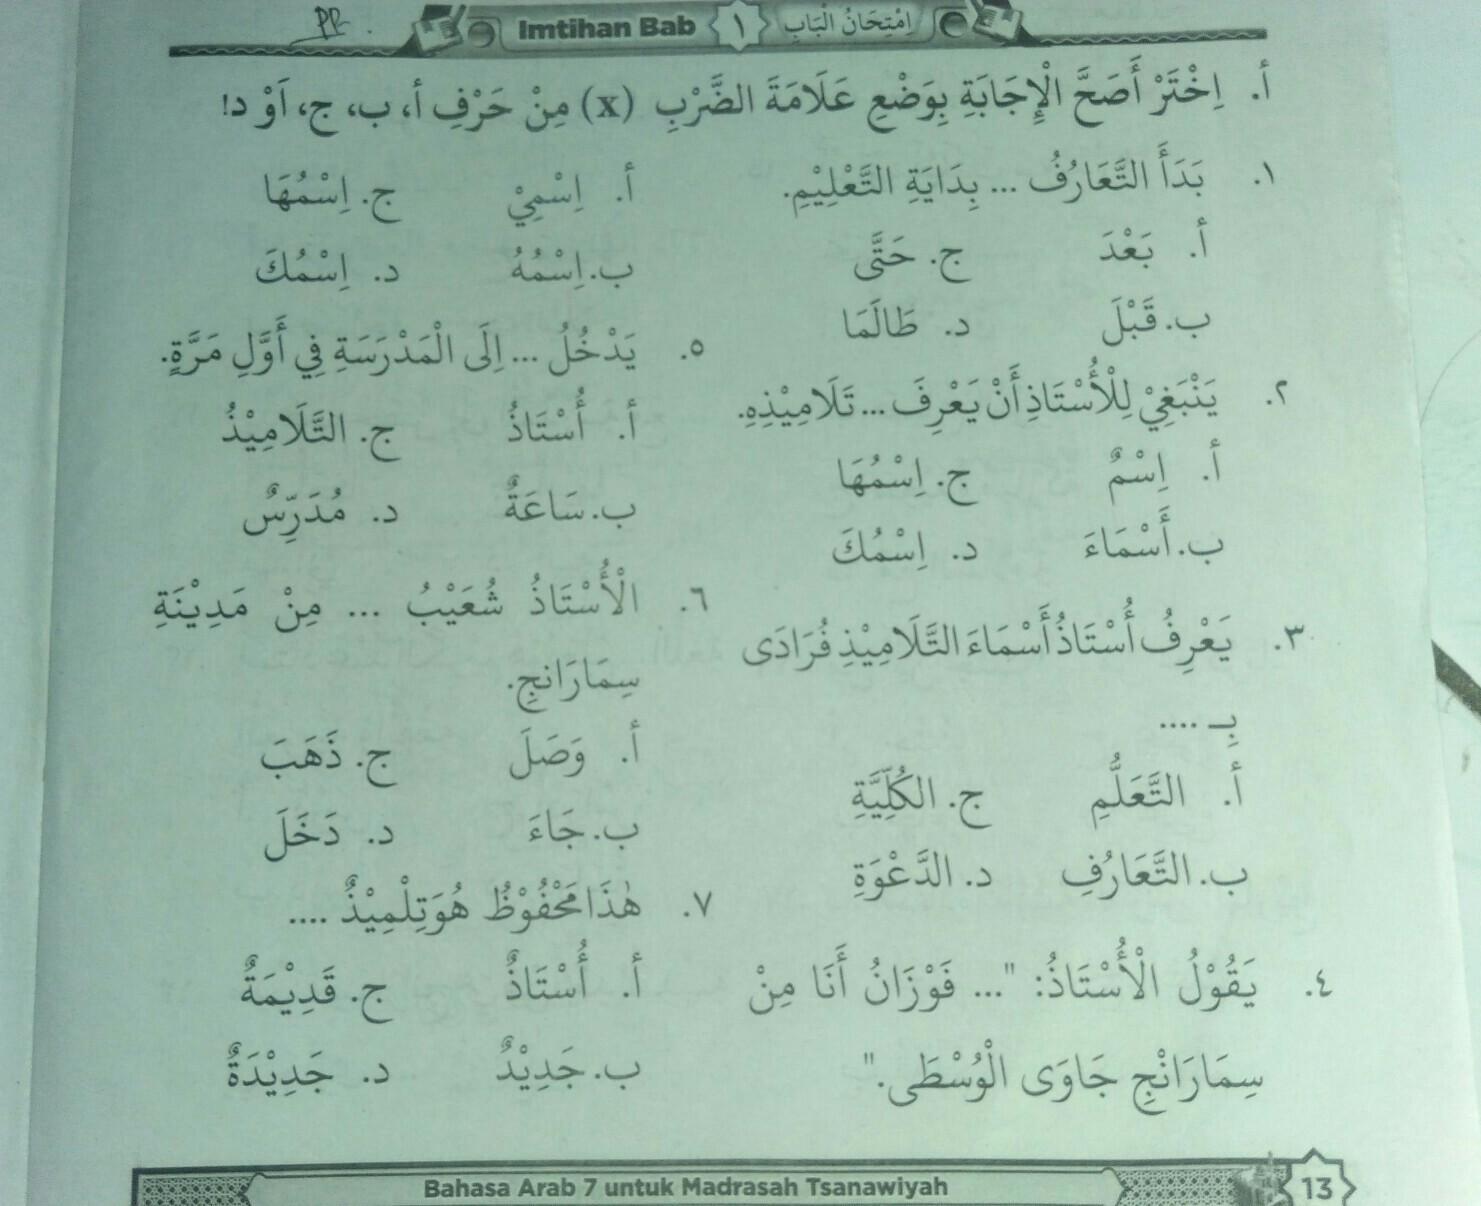 PR.
Imtihan Bab ١ اِمْتِحَانُ الْبَابِ
أ. اِخْتَرْ أَصَحَّ الْإِجَابَةِ بِوَضْعِ عَلَامَةَ الضَّرْبِ (x) مِنْ حَرْفِ أ، ب، ج، اَوْ د!
١. بَدَأَ التَّعَارُفُ ... بِدَايَةِ التَّعْلِيْمِ.
أ. بَعْدَ ج. حَتَّى
ب. قَبْلَ د. طَالَمَا
٢. يَنْبَغِيْ لِلْأُسْتَاذِ أَنْ يَعْرِفَ ... تَلَامِيْذِهِ.
أ. اِسْمٌ ج. اِسْمُهَا
ب. أَسْمَاءَ د. اِسْمُكَ
٣. يَعْرِفُ أُسْتَاذُ أَسْمَاءَ التَّلَامِيْذِ فُرَادَى
بِـ ....
أ. التَّعَلُّمِ ج. الكُلِّيَّةِ
ب. التَّعَارُفِ د. الدَّعْوَةِ
٤. يَقُوْلُ الْأُسْتَاذُ: "... فَوْزَانُ أَنَا مِنْ
سِمَارَانْجِ جَاوَى الْوُسْطَى."
أ. اِسْمِيْ ج. اِسْمُهَا
ب. اِسْمُهُ د. اِسْمُكَ
٥. يَدْخُلُ ... اِلَى الْمَدْرَسَةِ فِي أَوَّلِ مَرَّةٍ.
أ. أُسْتَاذُ ج. التَّلَامِيْذُ
ب. سَاعَةٌ د. مُدَرِّسٌ
٦. الْأُسْتَاذُ شُعَيْبُ ... مِنْ مَدِيْنَةِ
سِمَارَانجِ.
أ. وَصَلَ ج. ذَهَبَ
ب. جَاءَ د. دَخَلَ
٧. هٰذَا مَحْفُوْظٌ هُوَ تِلْمِيْذٌ ....
أ. أُسْتَاذٌ ج. قَدِيْمَةٌ
ب. جَدِيْدٌ د. جَدِيْدَةٌ
Bahasa Arab 7 untuk Madrasah Tsanawiyah
13